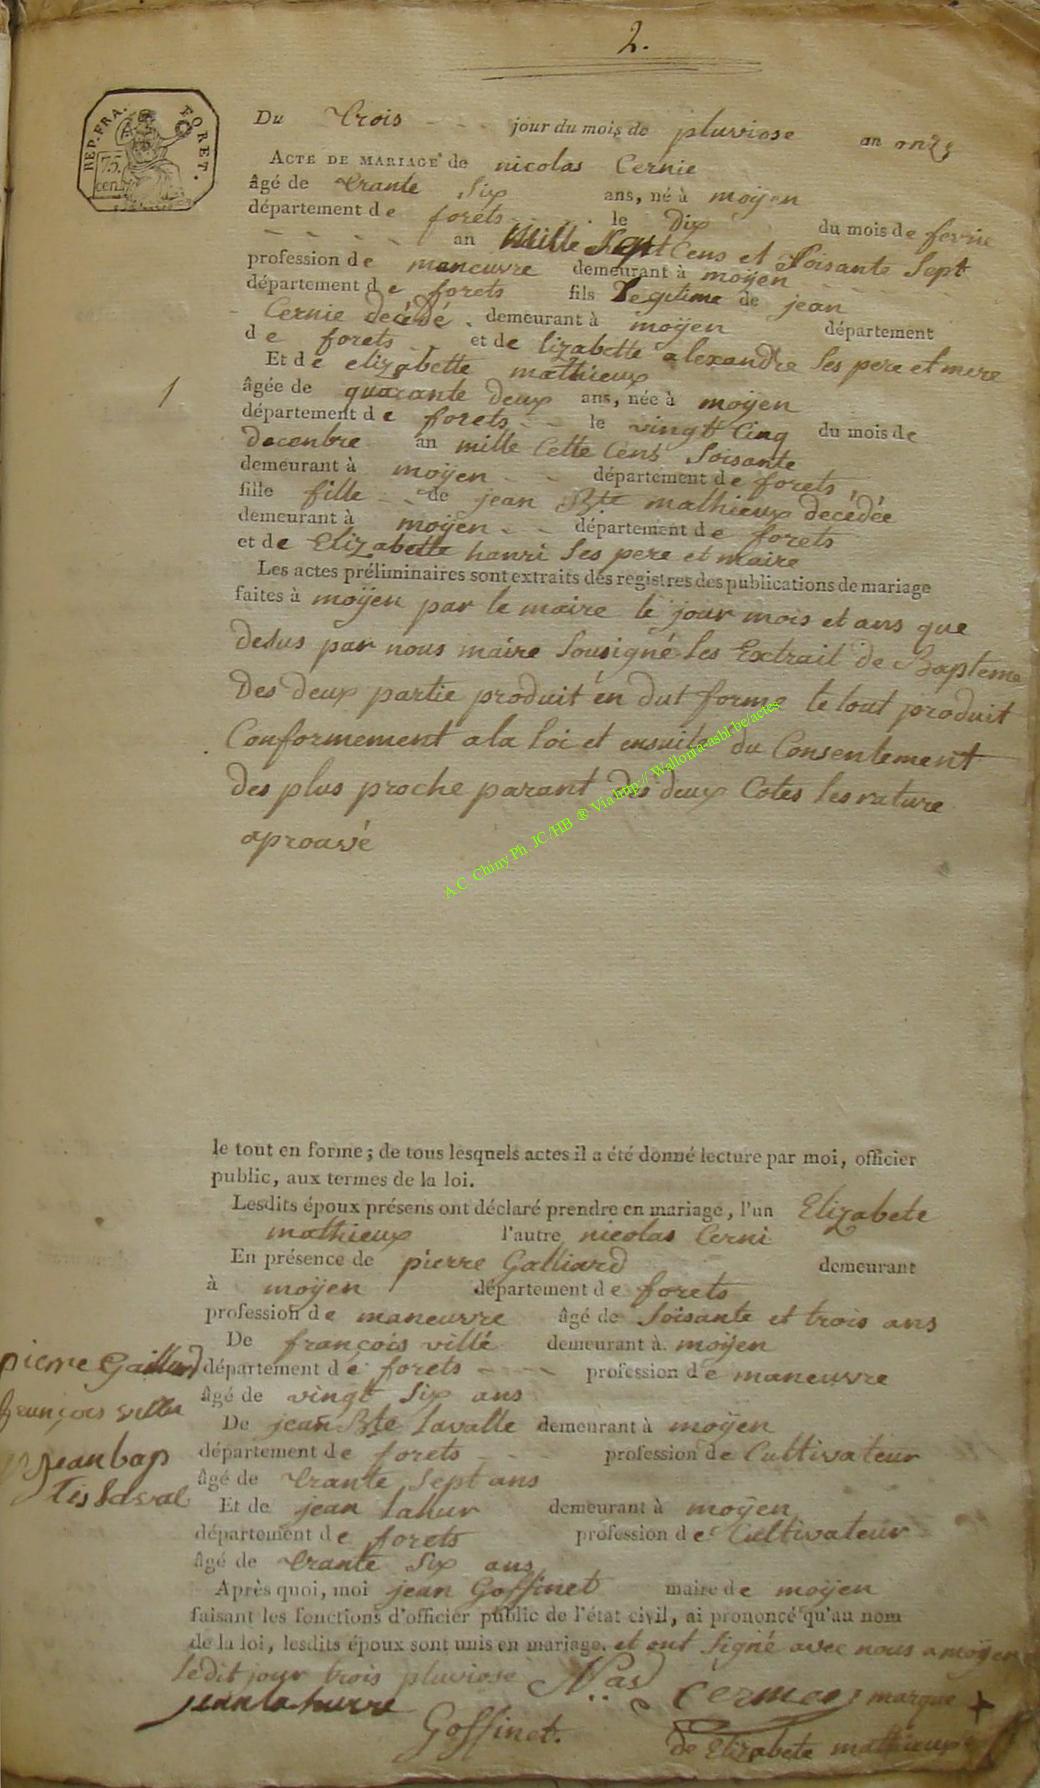 2.
REP. FRA. FORET.
75. cen.
Du Trois - - - jour du mois de pluviose an onze
ACTE DE MARIAGE de nicolas Cernie
âgé de Trante Six ans, né à moÿen
département de forets - - . le Dix du mois de fevrie
- - - - - an Mille Sept Cens et Soisante Sept
profession de maneuvre demeurant à moÿen - - -
département de forets fils Legitime de jean
- Cernie decédé . demeurant à moÿen département
de forets - - et de lizabette alexandre Ses pere et mere
Et de elizabette mathieux
1
âgée de quarante Deux ans, née à moÿen
département de forets - - le vingt Cinq du mois de
decenbre an mille Cette Cens Soisante
demeurant à moÿen - - département de forets
fille fille - - de jean Bte mathieux decédée
demeurant à moÿen - - département de forets
et de Elizabette hanri Ses pere et maire
Les actes préliminaires sont extraits des registres des publications de mariage
faites à moÿen par le maire le jour mois et ans que
desus par nous maire Sousigné Les Extrait de Bapteme
Des deux partie produit en dut forme le tout produit
Conformement a la Loi et ensuite du Consentement
des plus proche parant des deux Cotes les rature
aprouvé
A.C Chiny Ph. JC/HB ® Via http:// Wallonia-asbl.be/actes
le tout en forme ; de tous lesquels actes il a été donné lecture par moi, officier
public, aux termes de la loi.
Lesdits époux présens ont déclaré prendre en mariage, l'un Elizabete
mathieux l'autre nicolas Cerni
En présence de pierre Galliard demeurant
à moÿen département de forets
profession de maneuvre âgé de Soisante et trois ans
De françois villé demeurant à moÿen
pierre Gaillard
département de forets - - - profession de maneuvre
âgé de vingt Six ans
françois villé
De jean Bte Lavalle demeurant à moÿen
département de forets - - profession de Cultivateur
jean bap
tis Laval
âgé de Trante Sept ans
Et de jean Lahur demeurant à moÿen
département de forets profession de Cultivateur
âgé de Trante Six ans
Après quoi, moi jean Goffinet maire de moÿen
faisant les fonctions d'officier public de l'état civil, ai prononcé qu'au nom
de la loi, lesdits époux sont unis en mariage. et ont Signé avec nous a moÿen
Ledit jour trois pluviose Nas
jean la hurre marque +
Goffinet.
de Elizabete mathieux